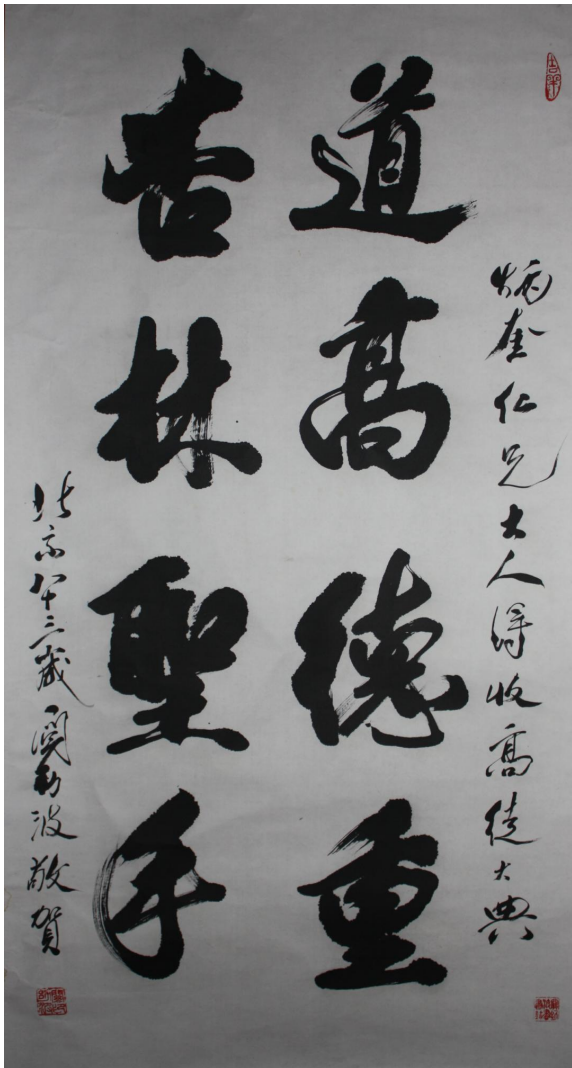 吉祥
炳奎仁兄大人得收高徒大典
道高德重
杏林聖手
北京八十三歲波敬賀